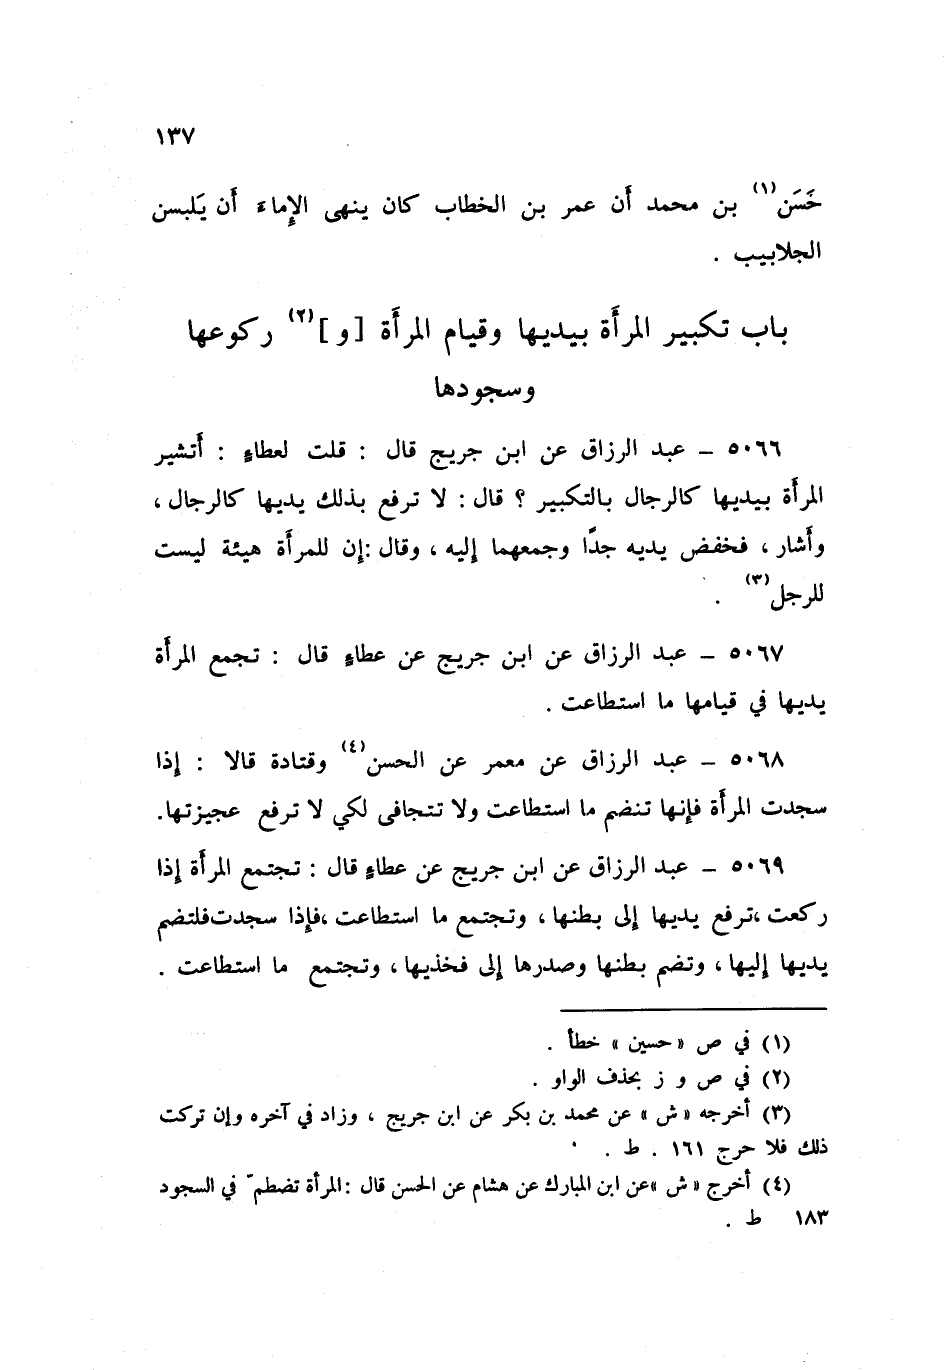 ١٣٧
حَسَن(١) بن محمد أن عمر بن الخطاب كان ينهى الإماءَ أَن يَلبسن
الجلابيب .
باب تكبير المرأَة بيديها وقيام المرأَة [ و ](٢) ركوعها
وسجودها
٥٠٦٦ ـ عبد الرزاق عن ابن جريج قال : قلت لعطاءٍ : أَتشير
المرأَة بيديها كالرجال بالتكبير ؟ قال : لا ترفع بذلك يديها كالرجال ،
وأَشار ، فخفض يديه جدًّا وجمعهما إليه ، وقال :إن للمرأَة هيئة ليست
للرجل(٣) .
٥٠٦٧ ـ عبد الرزاق عن ابن جريج عن عطاءٍ قال : تجمع المرأَة
يديها في قيامها ما استطاعت .
٥٠٦٨ ـ عبد الرزاق عن معمر عن الحسن(٤) وقتادة قالا : إِذا
سجدت المرأَة فإِنها تنضم ما استطاعت ولا تتجافى لكي لا ترفع عجيزتها.
٥٠٦٩ ـ عبد الرزاق عن ابن جريج عن عطاءٍ قال : تجتمع المرأَة إِذا
ركعت ،ترفع يديها إلى بطنها ، وتجتمع ما استطاعت ،فإِذا سجدت فلتضم
يديها إليها ، وتضم بطنها وصدرها إلى فخذيها ، وتجتمع ما استطاعت .
(١) في ص « حسين » خطأ .
(٢) في ص و ز بحذف الواو .
(٣) أخرجه « ش » عن محمد بن بكر عن ابن جريج ، وزاد في آخره وإن تركت
ذلك فلا حرج ١٦١ . ط .
(٤) أخرج « ش »عن ابن المبارك عن هشام عن الحسن قال :المرأة تضطمّ في السجود
١٨٣ ط .